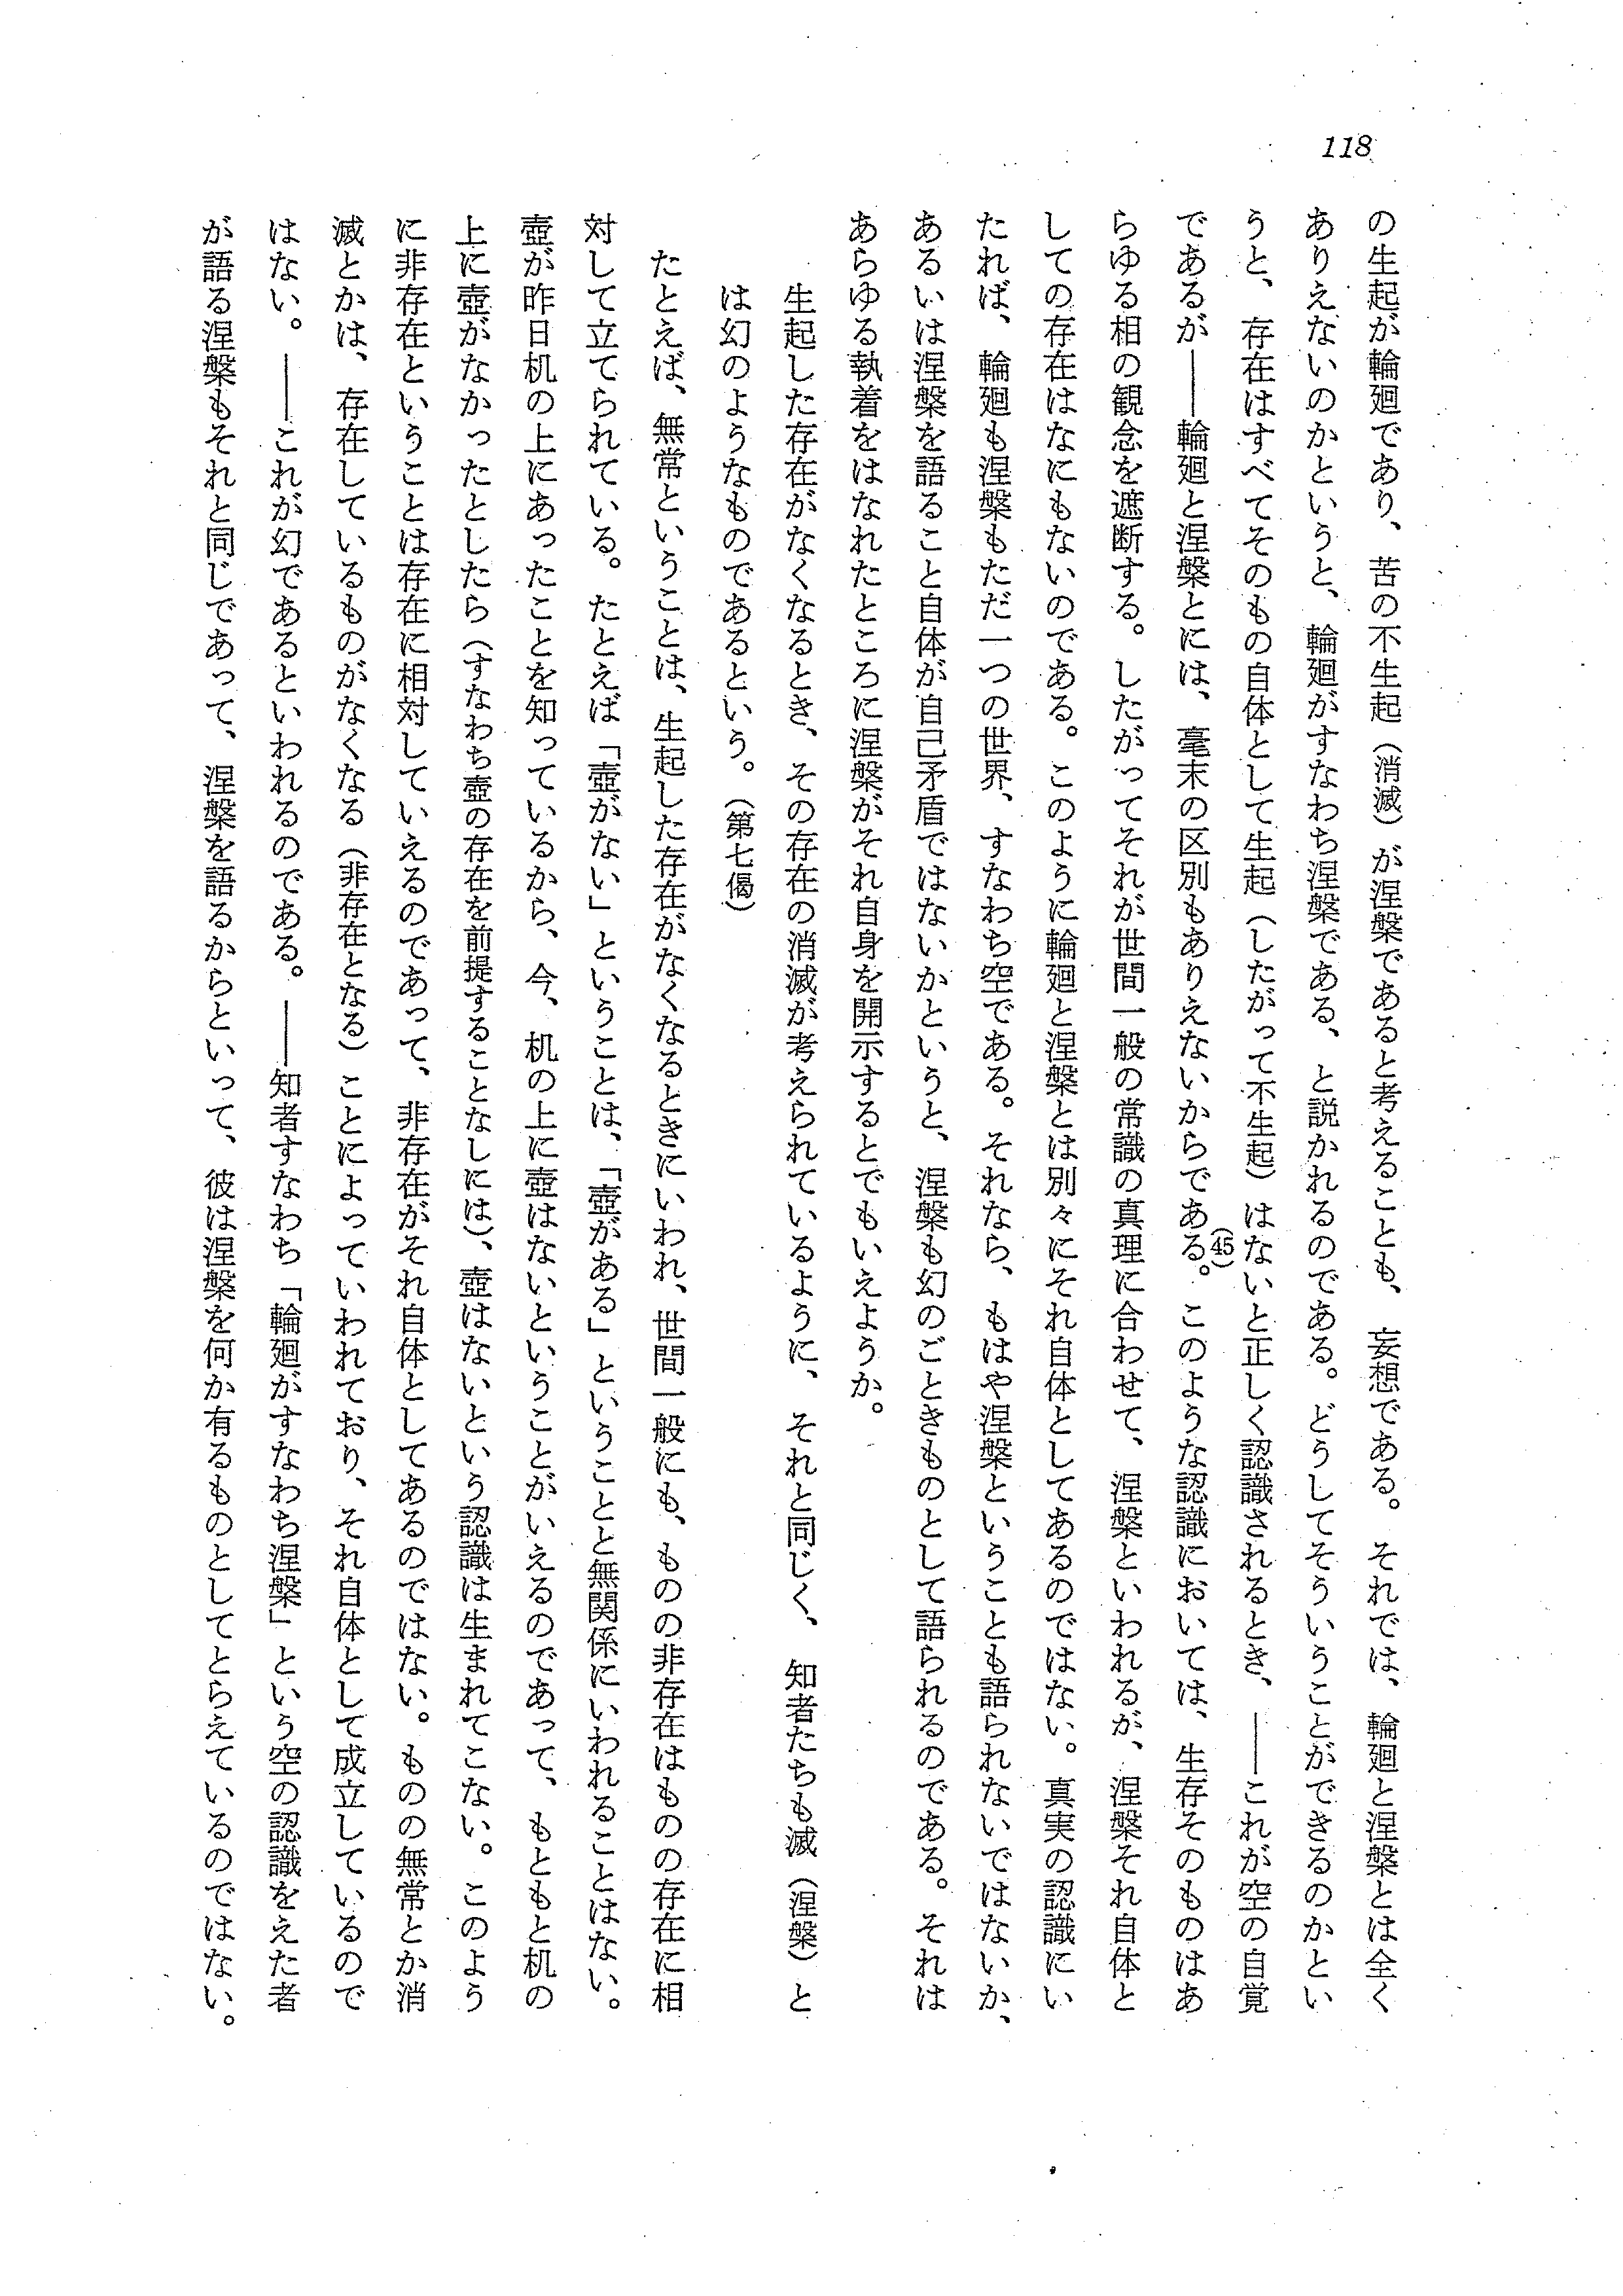 118
の生起が輪廻であり、苦の不生起（消滅）が涅槃であると考えることも、妄想である。それでは、輪廻と涅槃とは全く
ありえないのかというと、輪廻がすなわち涅槃である、と説かれるのである。どうしてそういうことができるのかとい
うと、存在はすべてそのもの自体として生起（したがって不生起）はないと正しく認識されるとき、――これが空の自覚
であるが――輪廻と涅槃とには、毫末の区別もありえないからである。(45)このような認識においては、生存そのものはあ
らゆる相の観念を遮断する。したがってそれが世間一般の常識の真理に合わせて、涅槃といわれるが、涅槃それ自体と
しての存在はなにもないのである。このように輪廻と涅槃とは別々にそれ自体としてあるのではない。真実の認識にい
たれば、輪廻も涅槃もただ一つの世界、すなわち空である。それなら、もはや涅槃ということも語られないではないか、
あるいは涅槃を語ること自体が自己矛盾ではないかというと、涅槃も幻のごときものとして語られるのである。それは
あらゆる執着をはなれたところに涅槃がそれ自身を開示するとでもいえようか。
生起した存在がなくなるとき、その存在の消滅が考えられているように、それと同じく、知者たちも滅（涅槃）と
は幻のようなものであるという。（第七偈）
たとえば、無常ということは、生起した存在がなくなるときにいわれ、世間一般にも、ものの非存在はものの存在に相
対して立てられている。たとえば「壺がない」ということは、「壺がある」ということと無関係にいわれることはない。
壺が昨日机の上にあったことを知っているから、今、机の上に壺はないということがいえるのであって、もともと机の
上に壺がなかったとしたら（すなわち壺の存在を前提することなしには）、壺はないという認識は生まれてこない。このよう
に非存在ということは存在に相対していえるのであって、非存在がそれ自体としてあるのではない。ものの無常とか消
滅とかは、存在しているものがなくなる（非存在となる）ことによっていわれており、それ自体として成立しているので
はない。――これが幻であるといわれるのである。――知者すなわち「輪廻がすなわち涅槃」という空の認識をえた者
が語る涅槃もそれと同じであって、涅槃を語るからといって、彼は涅槃を何か有るものとしてとらえているのではない。